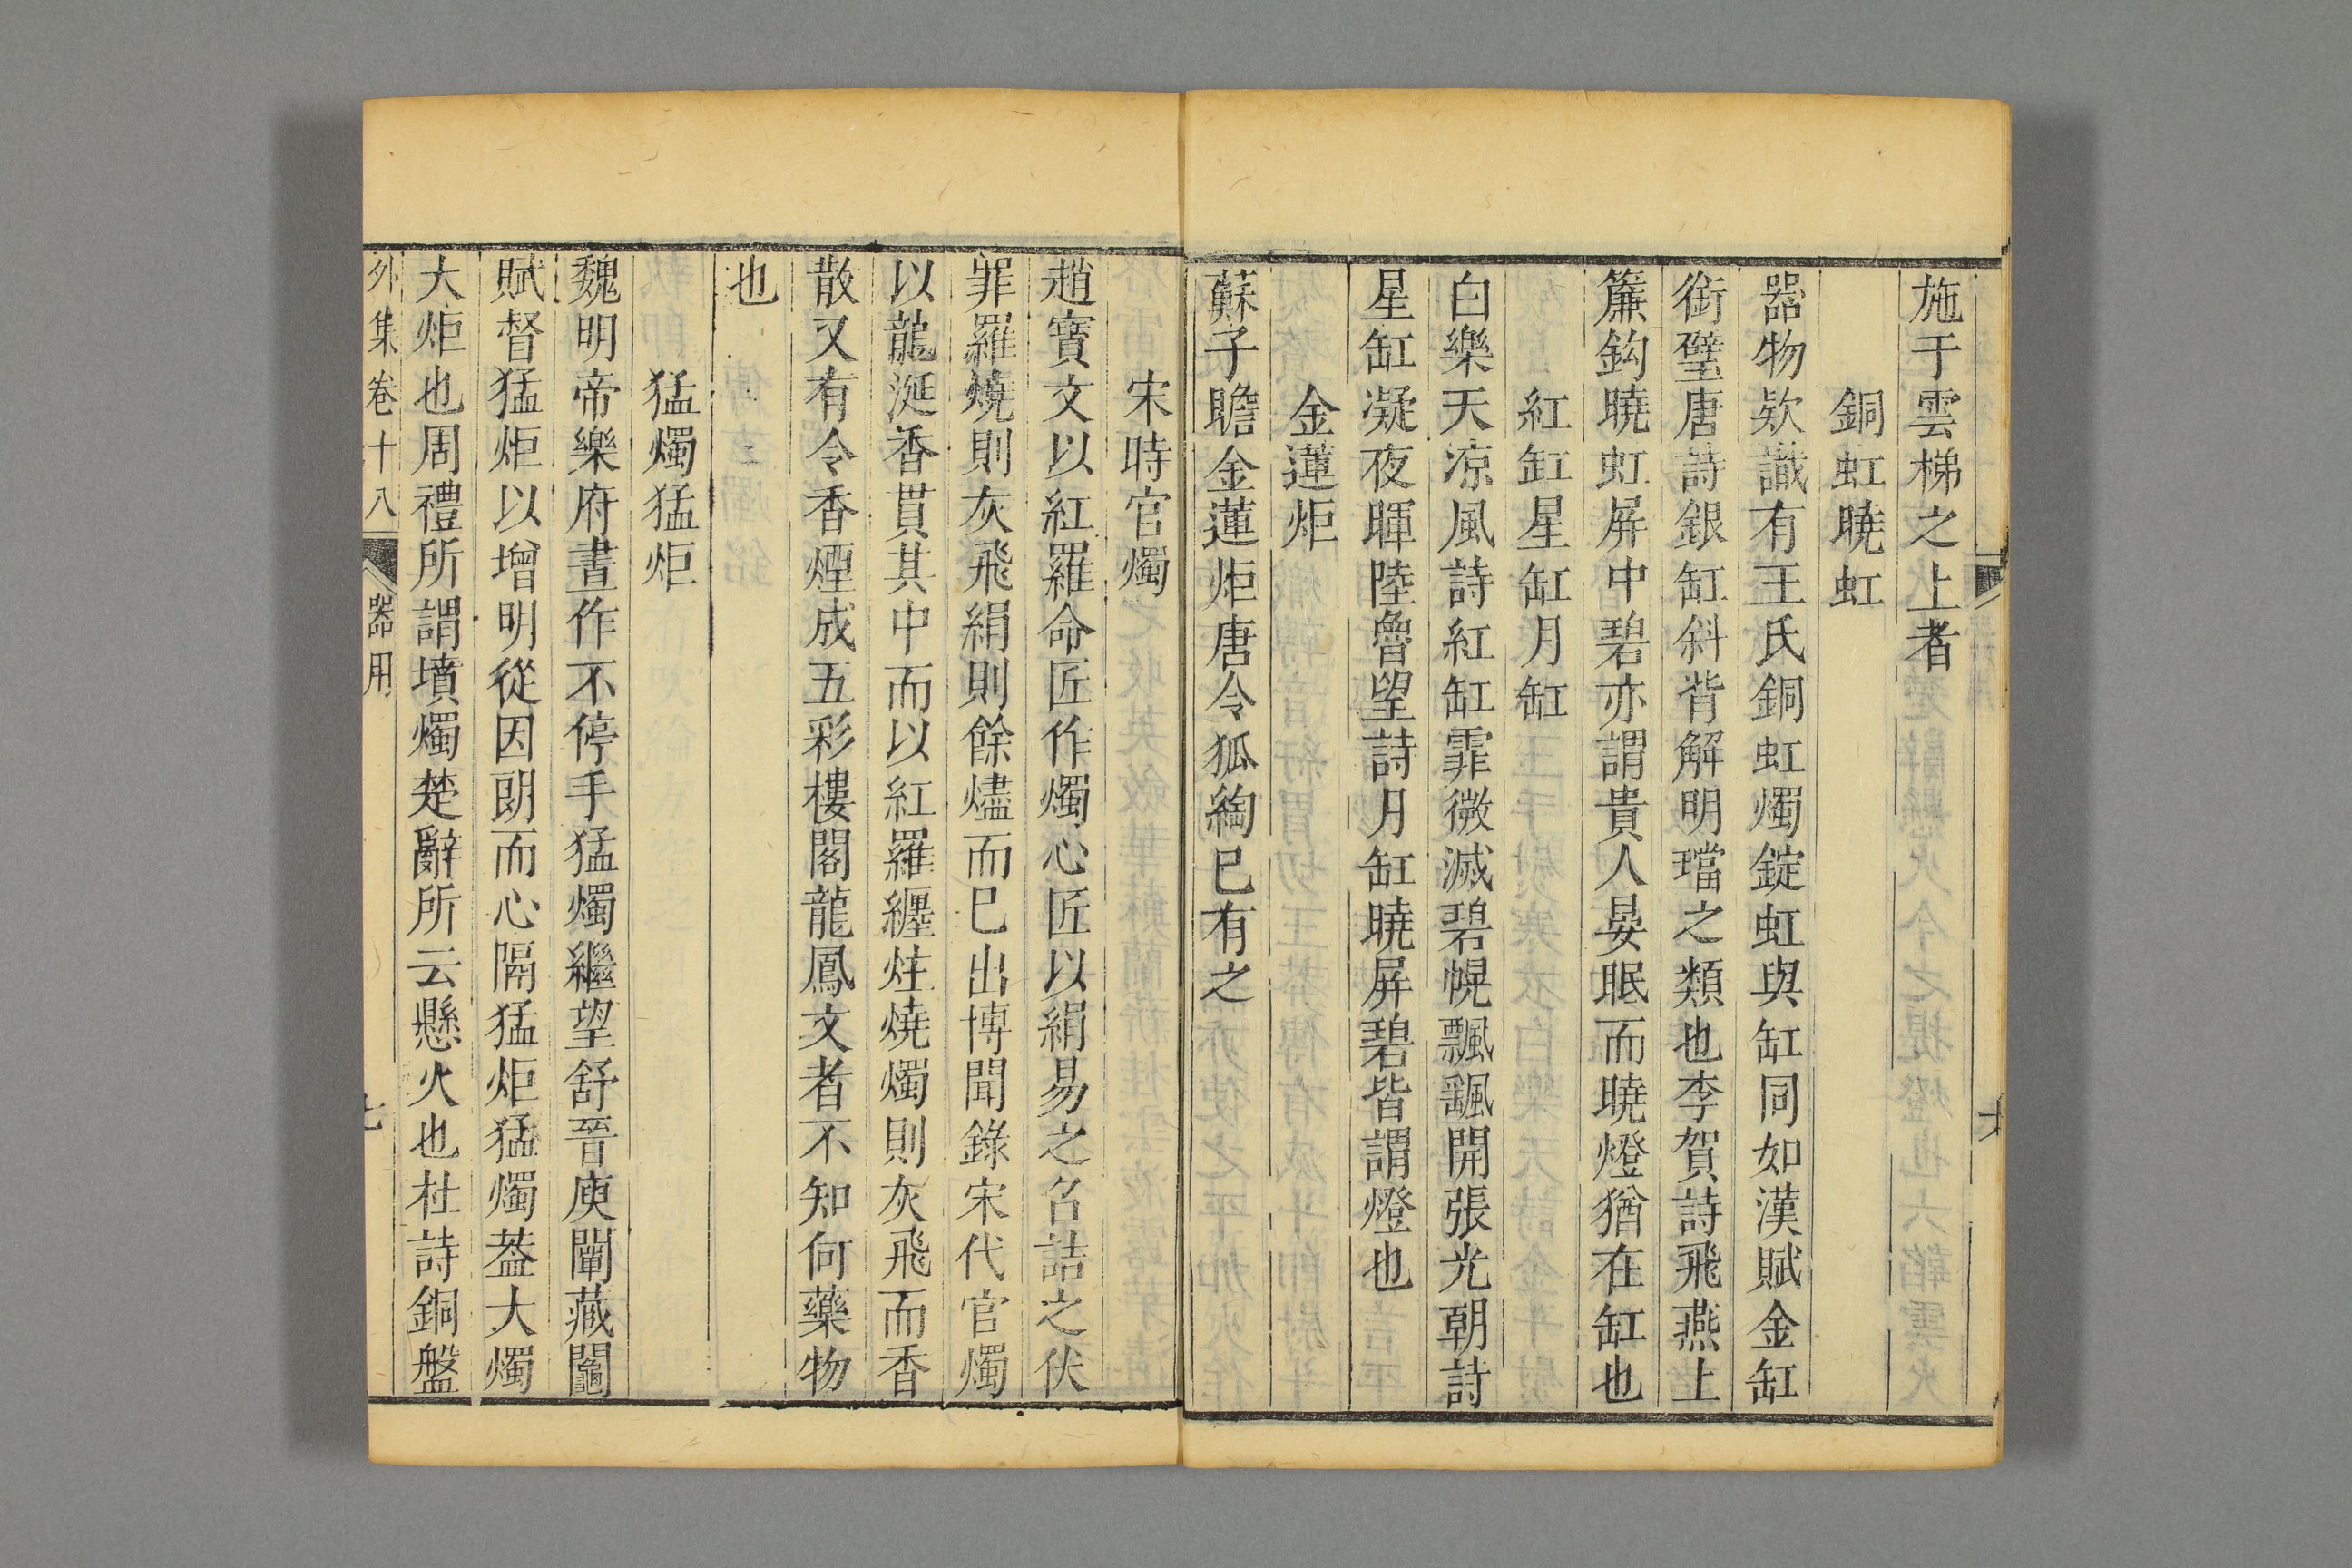 施于雲梯之上者
銅虹曉虹
器物欵識有王氏銅虹燭錠虹與缸同如漢賦金缸
銜璧唐詩銀缸斜背解明璫之類也李賀詩飛燕上
簾鈎曉虹屏中碧亦謂貴人晏眠而曉燈猶在缸也
紅缸星缸月缸
白樂天凉風詩紅缸霏微滅碧幌飄颻開張光朝詩
星缸凝夜暉陸魯望詩月缸曉屏碧皆謂燈也
金蓮炬
蘇子瞻金蓮炬唐令狐綯巳有之
宋時官燭
趙寶文以紅羅命匠作燭心匠以絹易之名詰之伏
罪羅燒則灰飛絹則餘燼而巳出博聞錄宋代官燭
以龍涎香貫其中而以紅羅纏炷燒燭則灰飛而香
散又有令香煙成五彩樓閣龍鳳文者不知何藥物
也
猛燭猛炬
魏明帝樂府晝作不停手猛燭繼望舒晉庾闡藏鬮
賦督猛炬以增明從因朗而心隔猛炬猛燭葢大燭
大炬也周禮所謂墳燭楚辭所云懸火也杜詩銅盤
外集卷十八 器用